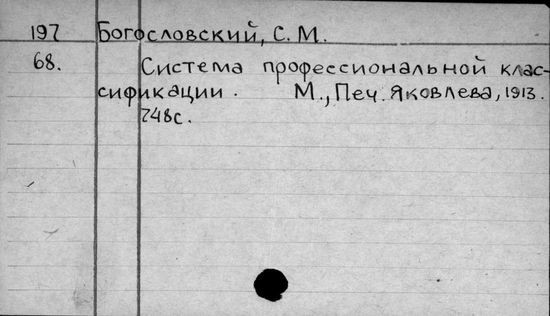 197 Богословский, С. М.
68. Система профессиональной клас-
сификации. М., Печ. Яковлева, 1913.
748с.